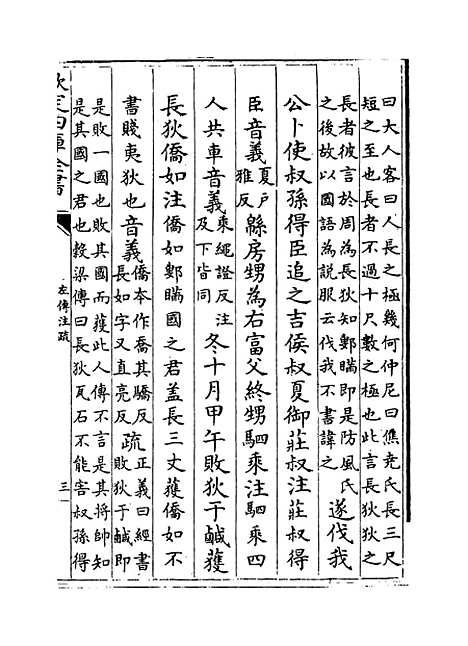 曰大人客曰人長之極幾何仲尼曰僬僥氏長三尺
短之至也長者不過十尺數之極也此言長狄狄之
長者彼言於周為長狄知鄋瞞即是防風氏
之後故以國語為説服云伐我不書諱之
遂伐我
公卜使叔孫得臣追之吉侯叔夏御莊叔注莊叔得
臣音義
夏戶
雅反
緜房甥為右富父終甥駟乘注駟乘四
人共車音義
乘繩證反注
及下皆同
冬十月甲午敗狄于鹹獲
長狄僑如注僑如鄋瞞國之君蓋長三丈獲僑如不
書賤夷狄也音義
僑本作喬其驕反
長如字又直亮反
疏
正義曰經書
敗狄于鹹即
是敗一國也敗其國而獲此人傳不言是其將帥知
是其國之君也穀梁傳曰長狄瓦石不能害叔孫得
欽定四庫全書
左傳注疏
三